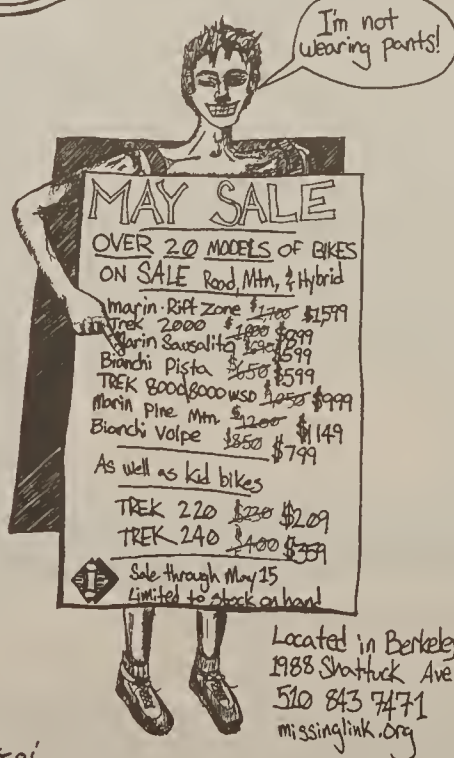 I'm not
wearing pants!
MAY SALE
OVER 20 MODELS OF BIKES
ON SALE Road, Mtn, & Hybrid
Marin · Rift Zone $1700 $1599
Trek 2000 $1000 $899
Marin Sausalito $690 $599
Bianchi Pista $650 $599
TREK 8000/8000 WSD $1050 $999
Marin Pine Mtn. $1200 $1149
Bianchi Volpe $850 $799
As well as kid bikes
TREK 220 $230 $209
TREK 240 $400 $359
Sale through May 15
Limited to stock on hand
Located in Berkeley
1988 Shattuck Ave
510 843 7471
missinglink.org